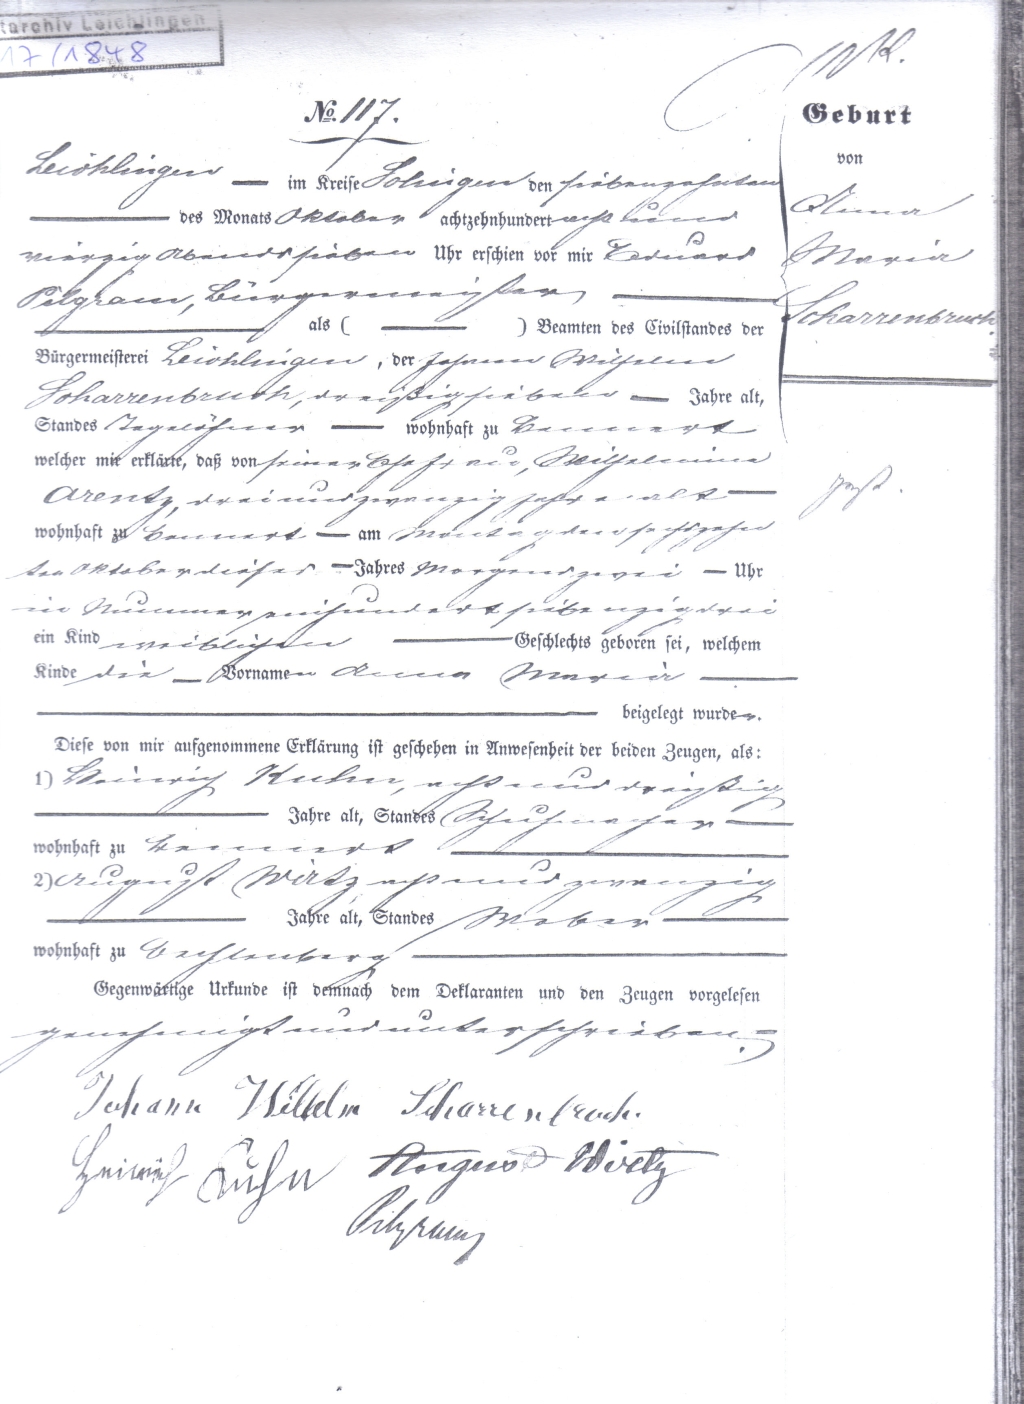 tarchiv Leichlingen
17/1848
No. 117.
Leichlingen — im Kreise Solingen den siebenzehnten
des Monats Oktober achtzehnhundert acht und
vierzig Abends sieben Uhr erschien vor mir Eduard
Pilgram, Bürgermeister,
als ( — ) Beamten des Civilstandes der
Bürgermeisterei Leichlingen, der Johann Wilhelm
Scharrenbruch, dreißigsieben — Jahre alt,
Standes Tagelöhner — wohnhaft zu Bennert
welcher mir erklärte, daß von seiner Ehefrau, Wilhelmina
Arentz, dreiundzwanzig Jahre alt —
wohnhaft zu Bennert — am Montag den sechszehn
ten Oktober dieses — Jahres Morgens zwei — Uhr
in Nummer einhundert siebenzigdrei
ein Kind weiblichen Geschlechts geboren sei, welchem
Kinde die — Vornamen Anna Maria
beigelegt wurden.
Diese von mir aufgenommene Erklärung ist geschehen in Anwesenheit der beiden Zeugen, als:
1) Heinrich Kuhn, acht und dreißig
Jahre alt, Standes Schuhmacher
wohnhaft zu Bennert
2) August Wirtz acht und zwanzig
Jahre alt, Standes Weber
wohnhaft zu
Gegenwärtige Urkunde ist demnach dem Deklaranten und den Zeugen vorgelesen
genehmigt und unterschrieben.
Johann Wilhelm Scharrenbroch.
Heinrich Kuhn August Wirtz
Pilgram
Geburt
von
Anna
Maria
Scharrenbruch.